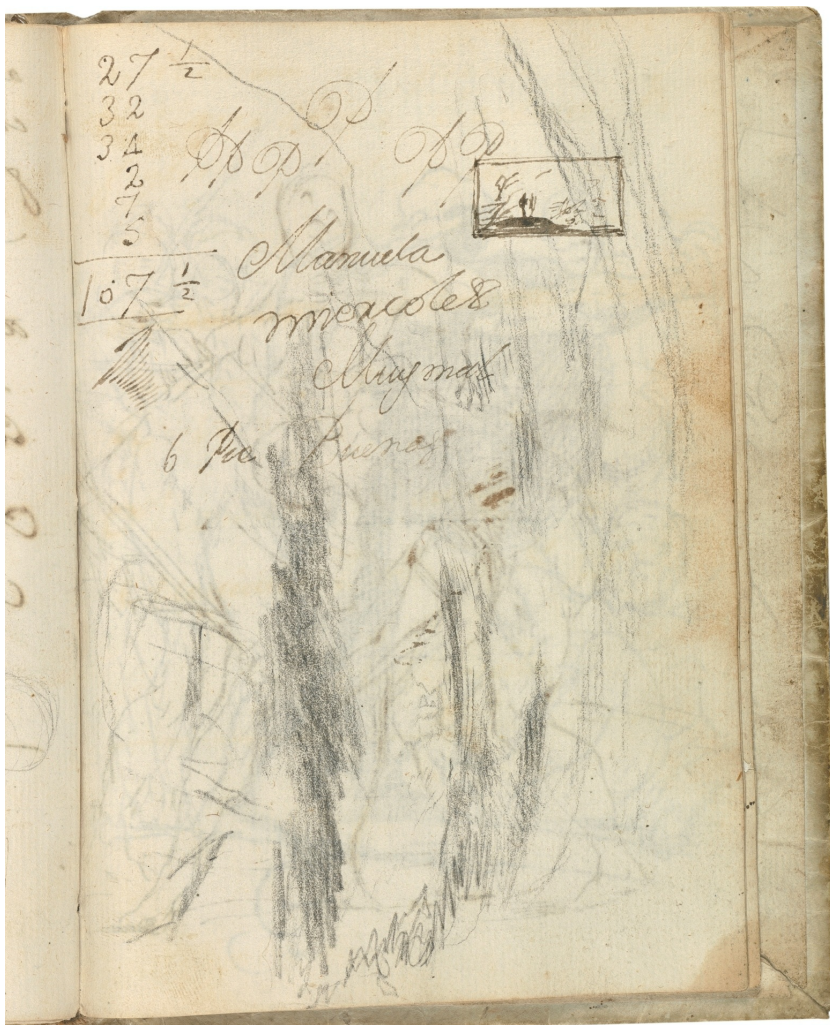 27 1/2
32
34
2
7
5
107 1/2
P P P P P
Manuela
miercoles
Muy mal
6 Pie Buenos